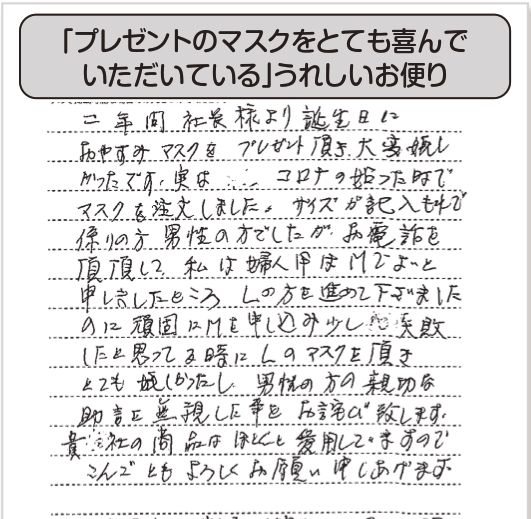 「プレゼントのマスクをとても喜んで
いただいている」うれしいお便り
二年間 社長様より誕生日に
おやすみマスクを プレゼント頂き大変嬉し
かったです。実は コロナの始った時で
マスクを注文しました。サイズが記入もれで
係りの方 男性の方でしたが お電話を
頂頂して 私は婦人用はMでよいと
申しましたところ Lの方を進めて下さいました
のに頑固にMを申し込み少し 失敗
したと思ってる時にLのマスクを頂き
とても嬉しかったし 男性の方の親切な
助言を無視した事をお詫び致します。
貴社の商品はほとんど愛用していますので
こんごともよろしくお願い申しあげます